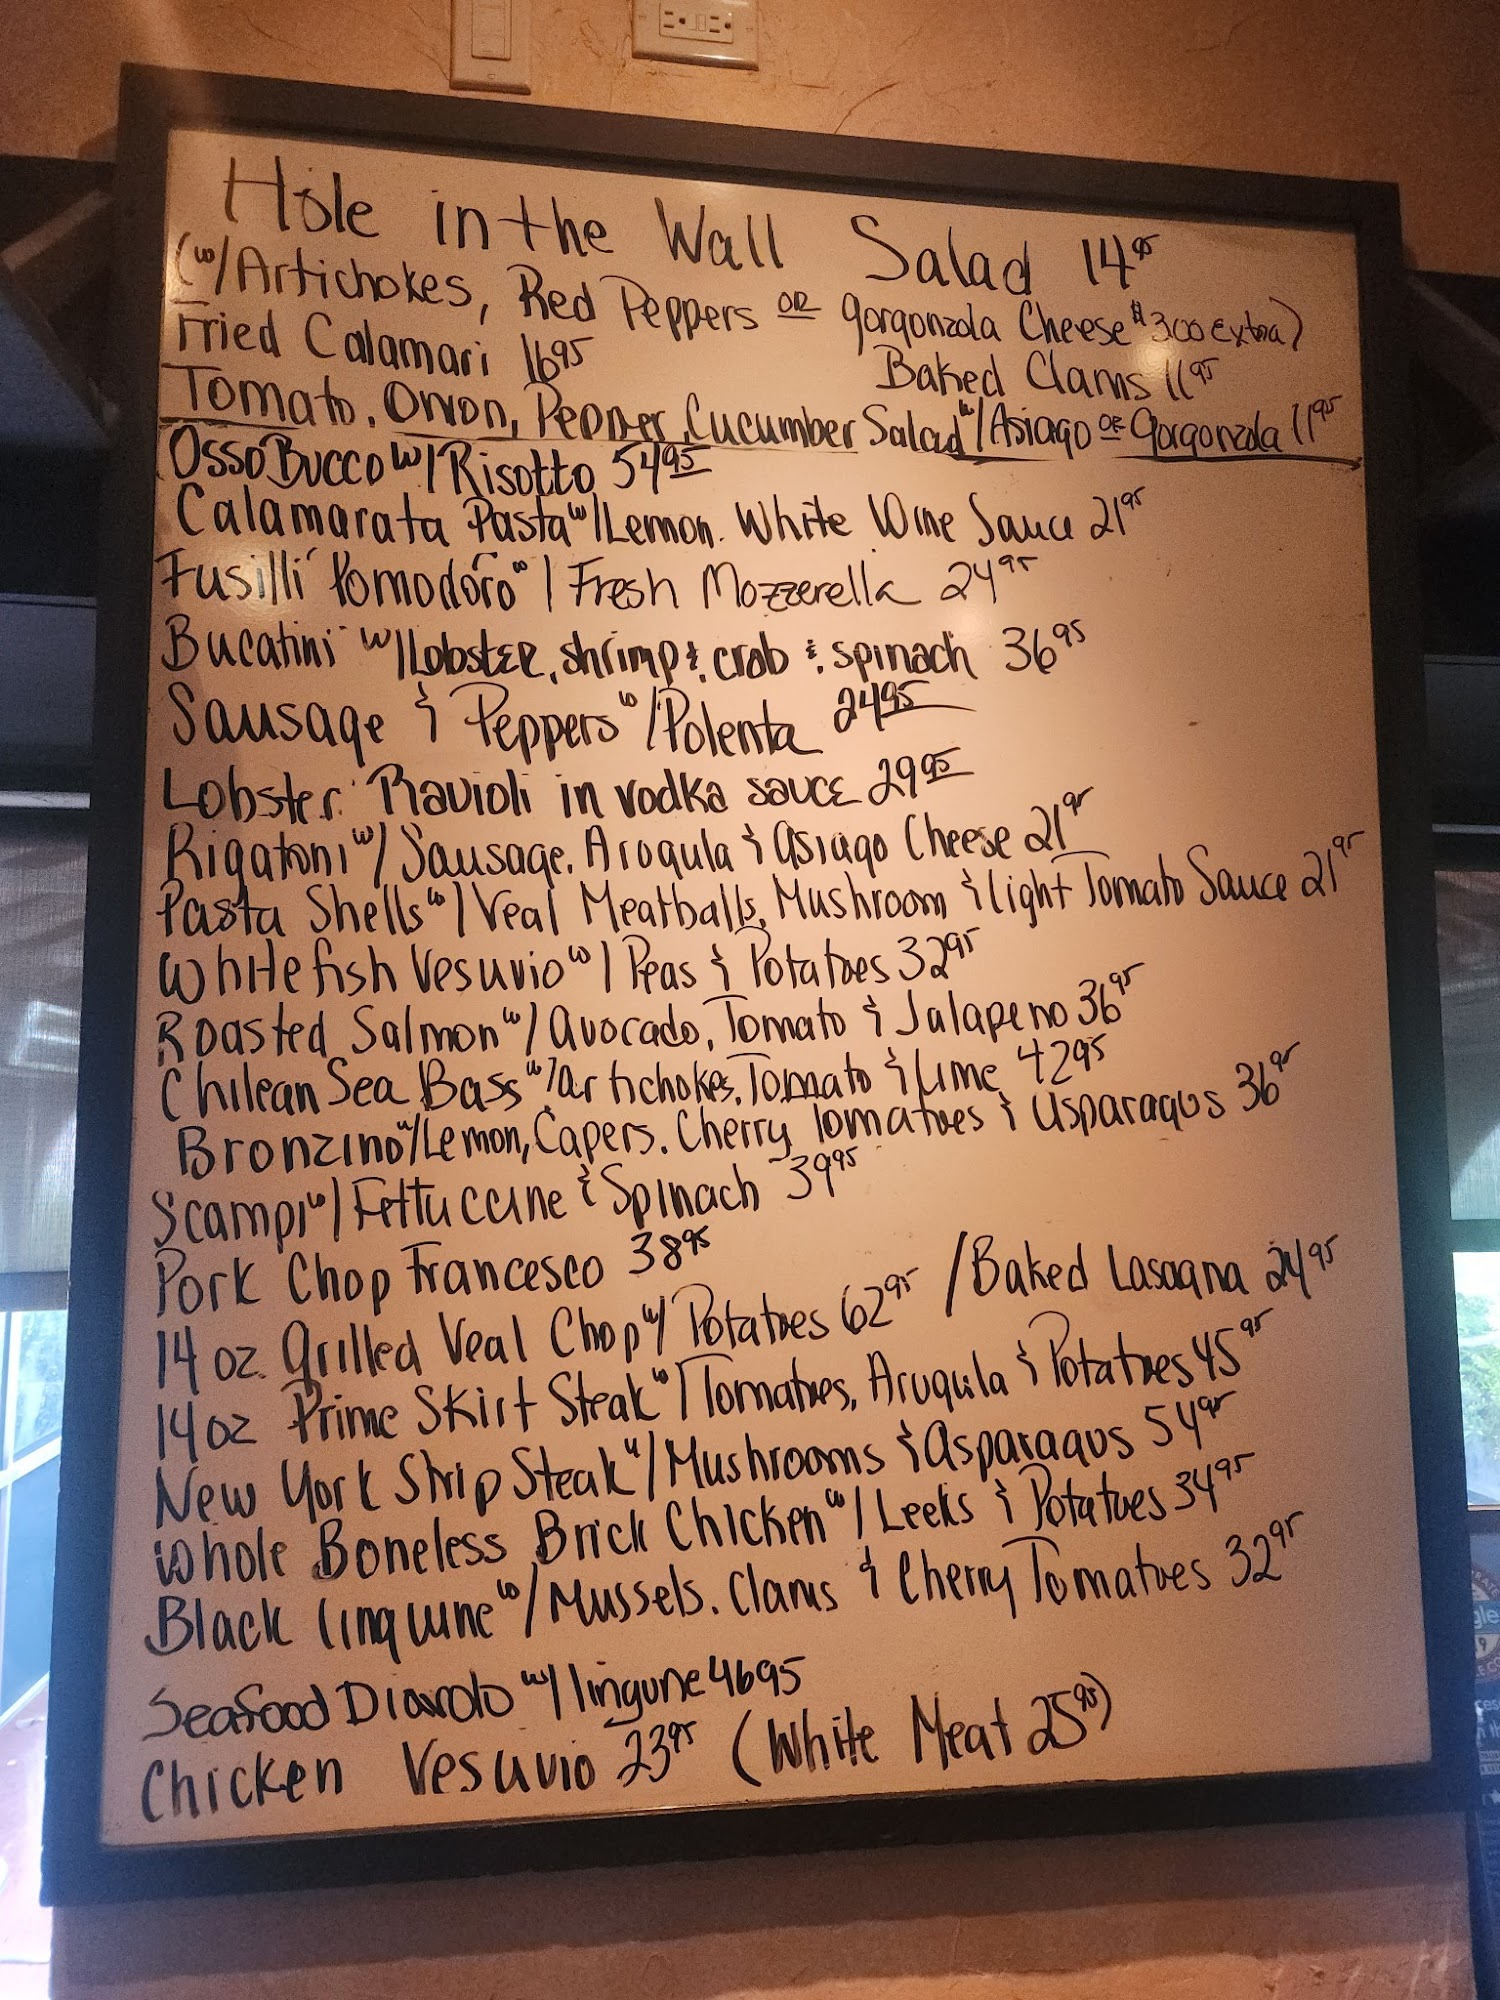 Hole in the Wall Salad 14 95
(w/Artichokes, Red Peppers OR Gorgonzola Cheese $3.00 Extra)
Fried Calamari 16 95 Baked Clams 11 95
Tomato, Onion, Pepper, Cucumber Salad w/Asiago OR Gorgonzola 11 95
Osso Bucco w/Risotto 54 95
Calamarata Pasta w/Lemon. White Wine Sauce 21 95
Fusilli Pomodoro w/Fresh Mozzerella 24 95
Bucatini w/Lobster, shrimp & crab & spinach 36 95
Sausage & Peppers w/Polenta 24 95
Lobster Ravioli in vodka sauce 29 95
Rigatoni w/Sausage, Arugula & Asiago Cheese 21 95
Pasta Shells w/Veal Meatballs, Mushroom & Light Tomato Sauce 21 95
Whitefish Vesuvio w/Peas & Potatoes 32 95
Roasted Salmon w/Avocado, Tomato & Jalapeno 36 95
Chilean Sea Bass w/artichokes, Tomato & Lime 42 95
Bronzino w/Lemon, Capers, Cherry Tomatoes & asparagus 36 95
Scampi w/Fettuccine & Spinach 39 95
Pork Chop Francesco 38 95
14 oz. Grilled Veal Chop w/Potatoes 62 95 /Baked Lasagna 24 95
14 oz Prime Skirt Steak w/Tomatoes, Arugula & Potatoes 45 95
New York Strip Steak w/Mushrooms & Asparagus 54 95
Whole Boneless Brick Chicken w/Leeks & Potatoes 34 95
Black Linguine w/Mussels, Clams & Cherry Tomatoes 32 95
Seafood Diavolo w/lingune 46 95
Chicken Vesuvio 23 95 (White Meat 25 95)